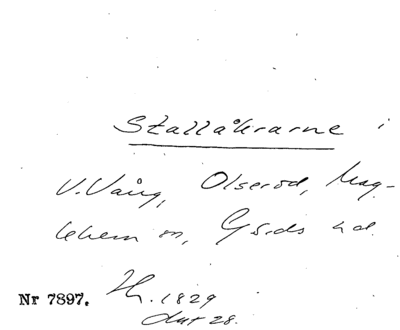 Stallåkrarne i
V. Vång, Olseröd, Mag-
lehem sn, Gärds hd.
Nr 7897. Th. 1829
Akt 28.